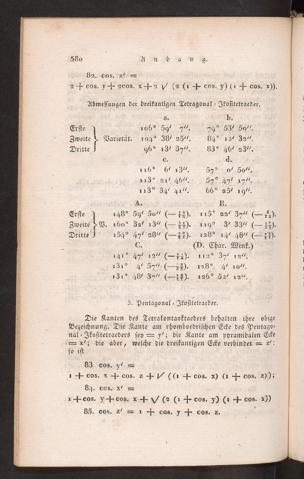 580 Anhang.
82. cos. z' =
2 + cos. y + 2cos. x + 2 √ (2 (1 + cos. y) (1 + cos. x)).
Abmessungen der dreikantigen Tetragonal-Ikositetraeder.
a. b.
Erste 106° 59' 7". 79° 53' 50".
Zweite Varietät. 104° 38' 25". 84° 12' 32".
Dritte 96° 13' 37". 83° 46' 23".
c. d.
116° 6' 13". 57° 0' 50".
113° 21' 46". 57° 47' 17".
113° 34' 41". 66° 25' 19".
A. B.
Erste 148° 59' 50" 115° 22' 37"
Zweite V. 160° 32' 13" 119° 3' 33"
Dritte 154° 47' 28" 128° 14' 48"
C. (D. Char. Wink.)
141° 47' 12" 112° 37' 12".
131° 4' 57" 128° 4' 10".
131° 48' 37" 126° 52' 12".
5. Pentagonal-Ikositetraeder.
Die Kanten des Tetrakontaoktaeders behalten ihre obige
Bezeichnung. Die Kante am rhomboedrischen Ecke des Pentago-
nal-Ikositetraeders sey = y'; die Kante am pyramidalen Ecke
= x'; die aber, welche die dreikantigen Ecke verbindet = z':
so ist
83. cos. y' =
1 + cos. x + cos. z + √ ((1 + cos. x) (1 + cos. z));
84. cos. x' =
1 + cos. y + cos. x + √ (2 (1 + cos. y) (1 + cos. x))
85. cos. z' = 1 + cos. y + cos. z.